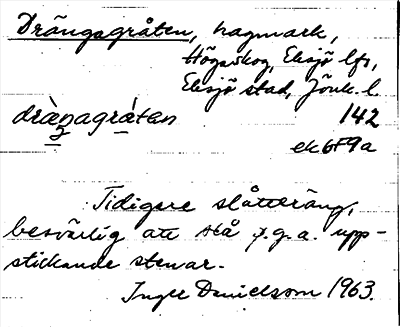 Drängagråten, hagmark,
Högaskog, Eksjö lfs,
Eksjö stad, Jönk. l.
dràŋagrå̀tan 142
ek 6F9a
Tidigare slåtteräng,
besvärlig att slå p.g.a. upp-
stickande stenar.
Inger Danielsson 1963.